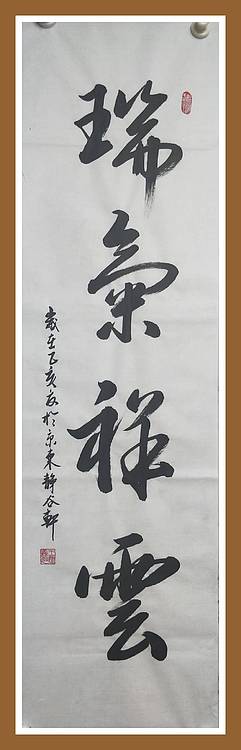 瑞氣祥雲
歲在己亥友於京東靜谷軒